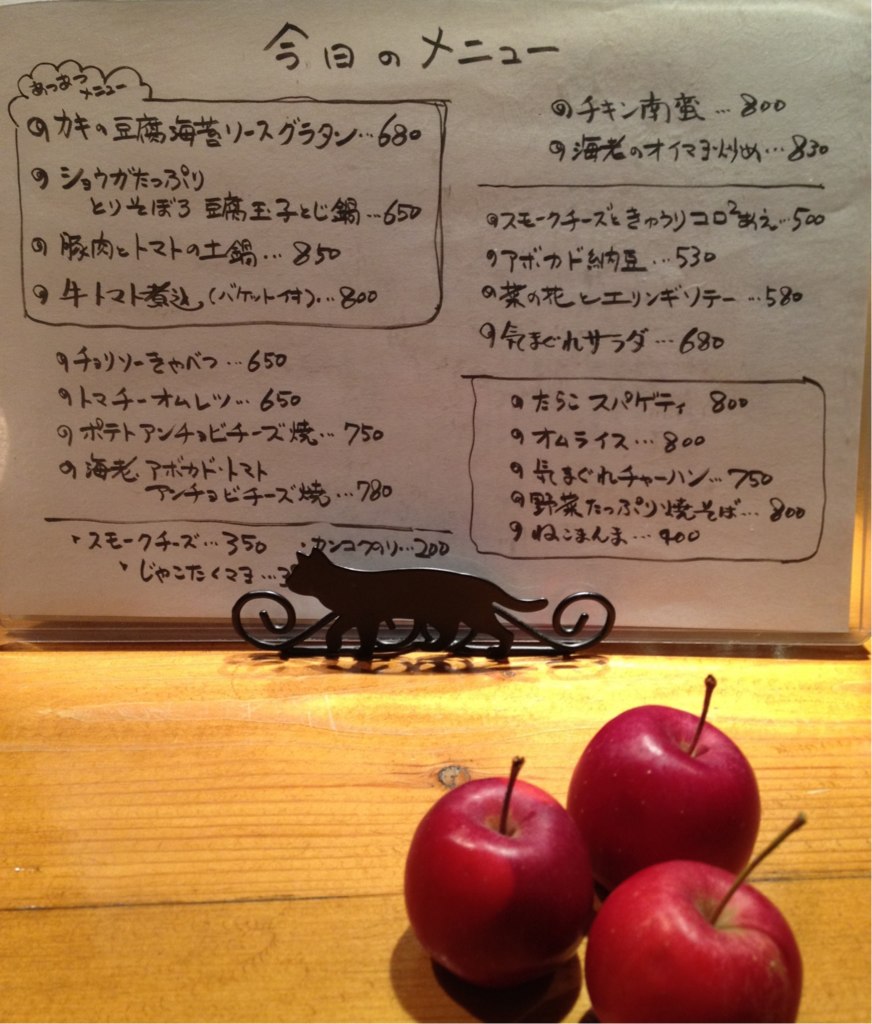 今日のメニュー
あつあつ
メニュー
カキの豆腐海苔ソースグラタン…680
ショウガたっぷり
とりそぼろ 豆腐玉子とじ鍋…650
豚肉とトマトの土鍋…850
牛トマト煮込(バケット付)…800
チョリソーきゃべつ…650
トマチーオムレツ…650
ポテトアンチョビチーズ焼…750
海老、アボカド・トマト
アンチョビチーズ焼…780
・スモークチーズ…350 ・カンコクのり…200
・じゃこたくマヨ…3
チキン南蛮…800
海老のオイマヨ炒め…830
スモークチーズときゅうりコロ²あえ…500
アボカド納豆…530
菜の花とエリンギソテー…580
気まぐれサラダ…680
たらこスパゲティ 800
オムライス…800
気まぐれチャーハン…750
野菜たっぷり焼そば…800
ねこまんま…400